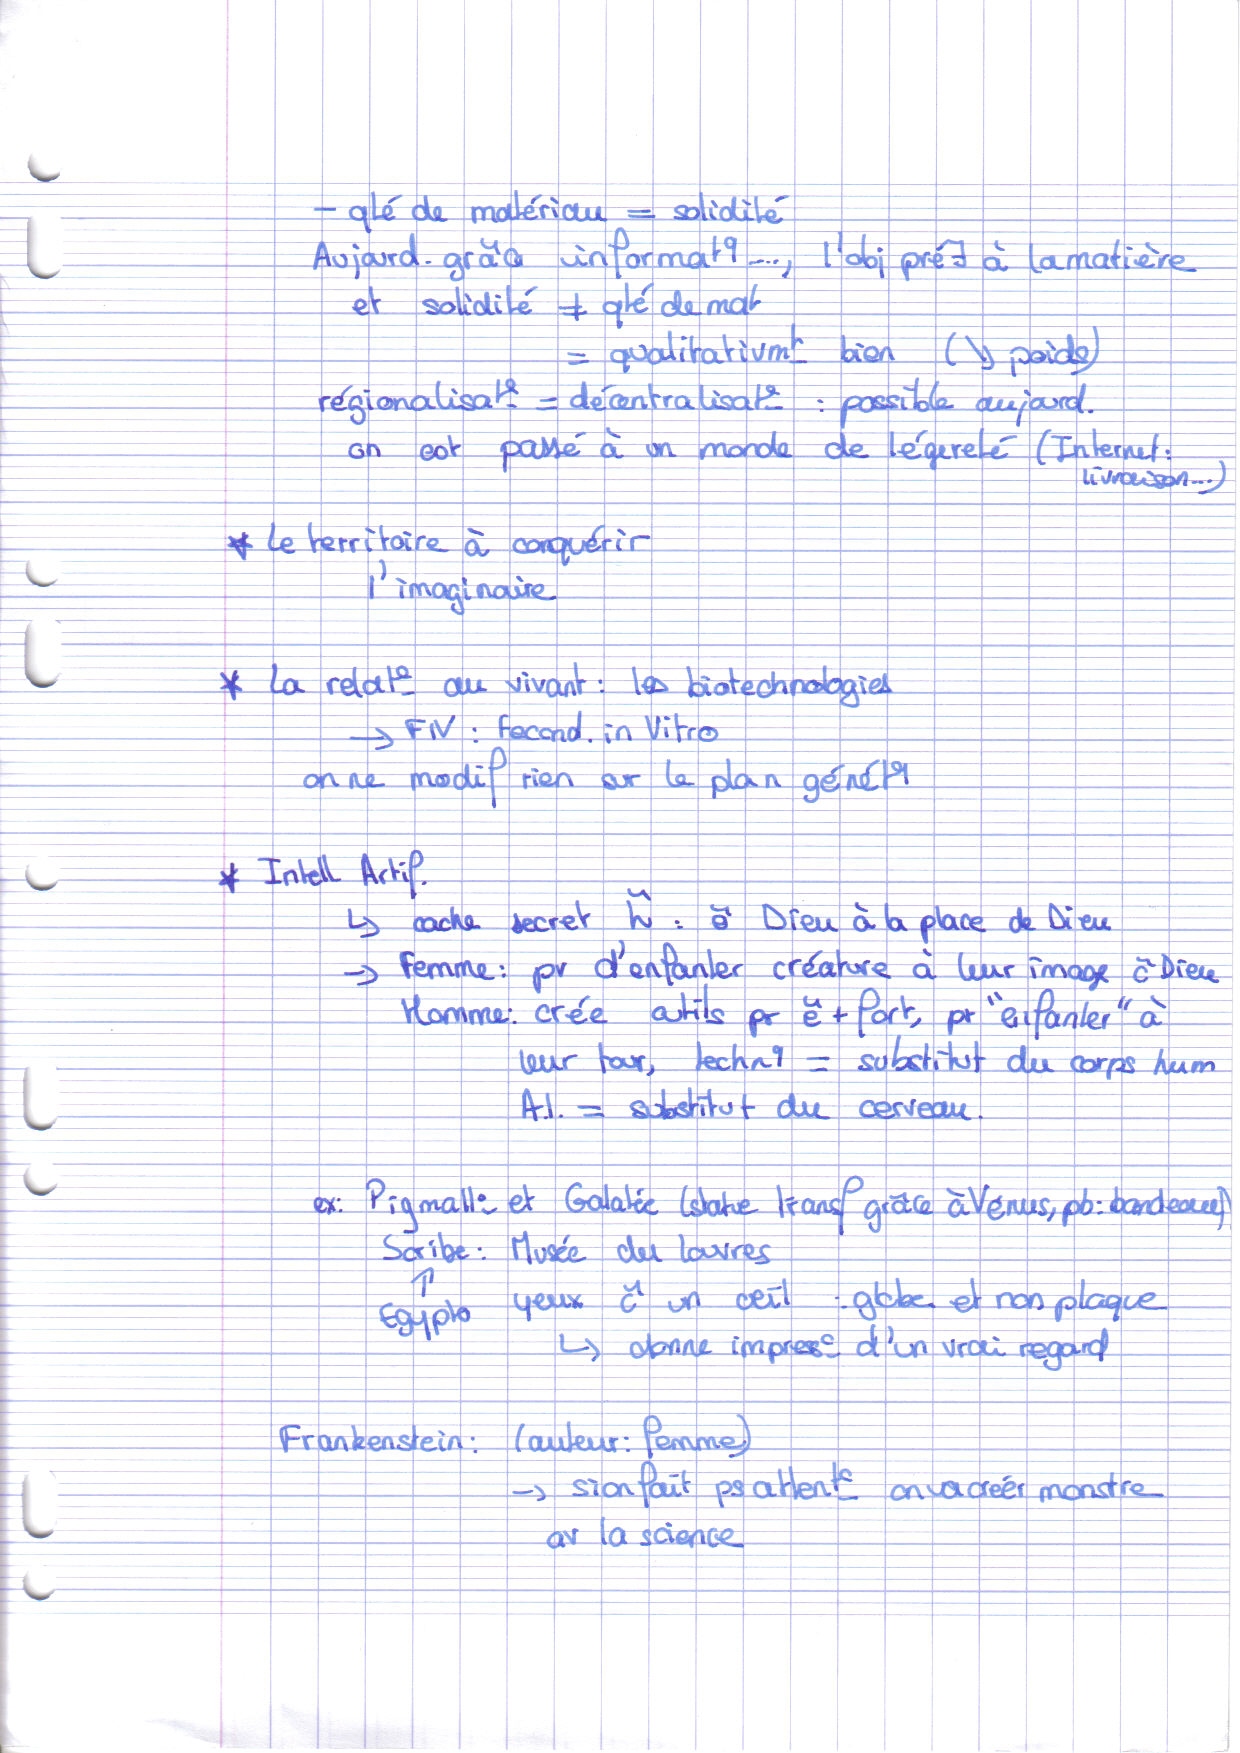 - qté de matériau = solidité
Aujourd. grâce informatq ..., l'obj pré∃ à la matière
et solidité ≠ qté de mat
= qualitativmt bien (↘ poids)
régionalisat° = décentralisat° : possible aujourd.
on est passé à un monde de légereté (Internet :
livraison...)
* Le territoire à conquérir
l'imaginaire
* La relat° au vivant : les biotechnologies
→ FIV : Fecond. in Vitro
on ne modif rien sur le plan génétq
* Intell Artif.
↳ cache secret h̆ : ĕ Dieu à la place de Dieu
→ Femme : pv d'enfanter créature à leur image c̆ Dieu
Homme : crée outils pr ĕ + fort, pr "enfanter" à
leur tour, technq = substitut du corps hum
A.I. = substitut du cerveau.
ex : Pigmali° et Galatée (statue transf grâce à Vénus, pb : bandeau)
Scribe : Musée du louvres
↑
Egypto yeux c̆ un œil : globe et non plaque
↳ donne impress° d'un vrai regard
Frankenstein : (auteur : femme)
→ si on fait ps attent° on va creér monstre
av la science